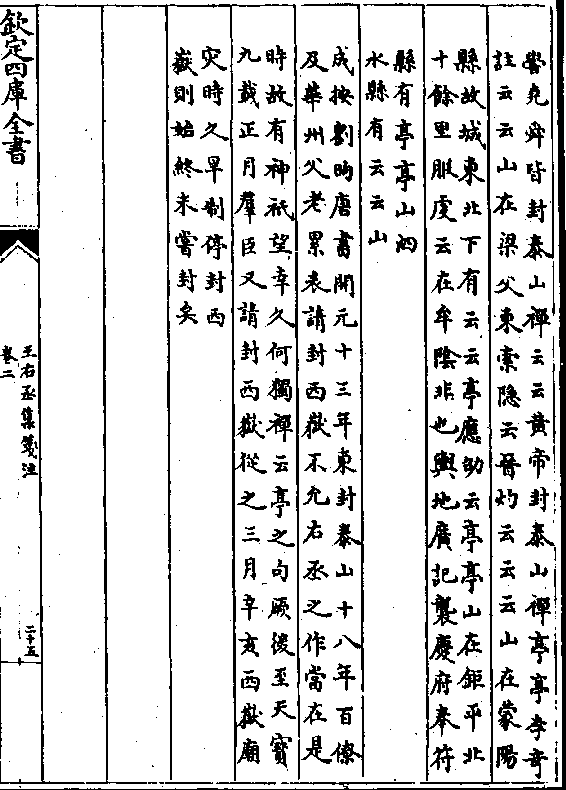 嚳堯舜皆封泰山禪云云黄帝封泰山禪亭亭李竒
註云云山在梁父東索隱云晉灼云云云山在蒙陽
縣故城東北下有云云亭應劭云亭亭山在鉅平北
十餘里服虔云在牟陰非也輿地廣記襲慶府奉符
縣有亭亭山泗
水縣有云云山
成按劉昫唐書開元十三年東封泰山十八年百僚
及華州父老累表請封西嶽不允右丞之作當在是
時故有神祇望幸久何獨禪云亭之句厥後至天寶
九載正月羣臣又請封西嶽從之三月辛亥西嶽廟
灾時久旱制停封西
嶽則始終未嘗封矣
欽定四庫全書
王右丞集箋注
卷二
二十五